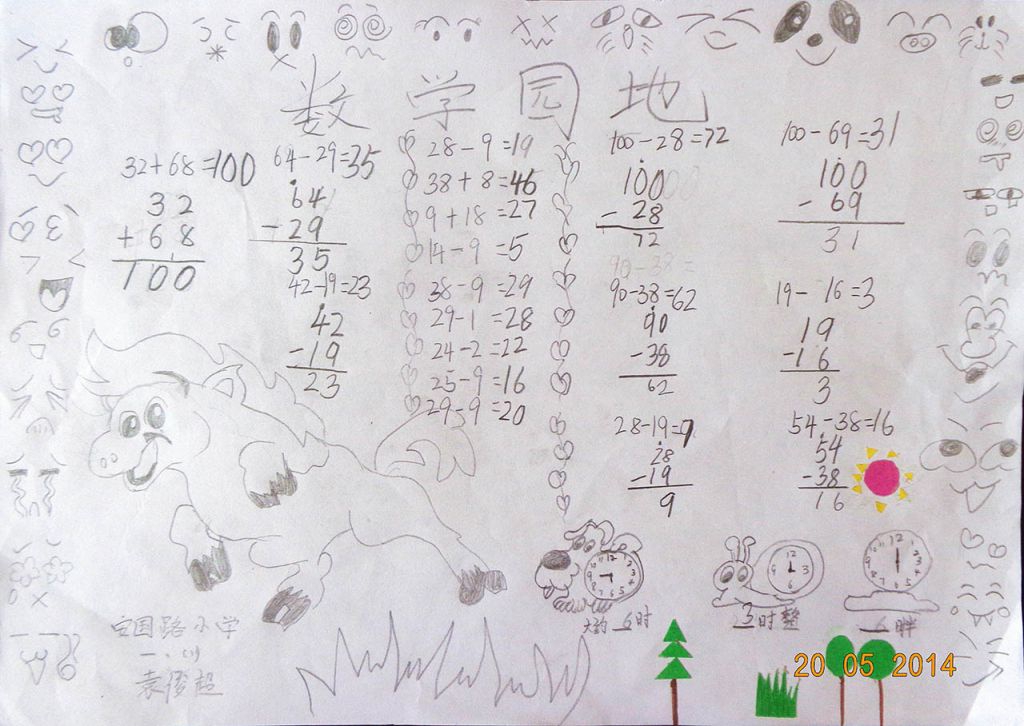 数学园地
32+68=100
32
+68
100
64-29=35
64
-29
35
42-19=23
42
-19
23
28-9=19
38+8=46
9+18=27
14-9=5
38-9=29
29-1=28
24-2=22
25-9=16
29-9=20
100-28=72
100
-28
72
90-38=
90-38=62
90
-38
62
28-19=9
28
-19
9
100-69=31
100
-69
31
19-16=3
19
-16
3
54-38=16
54
-38
16
大约 6时
3时整
6
国路小学
20 05 2014